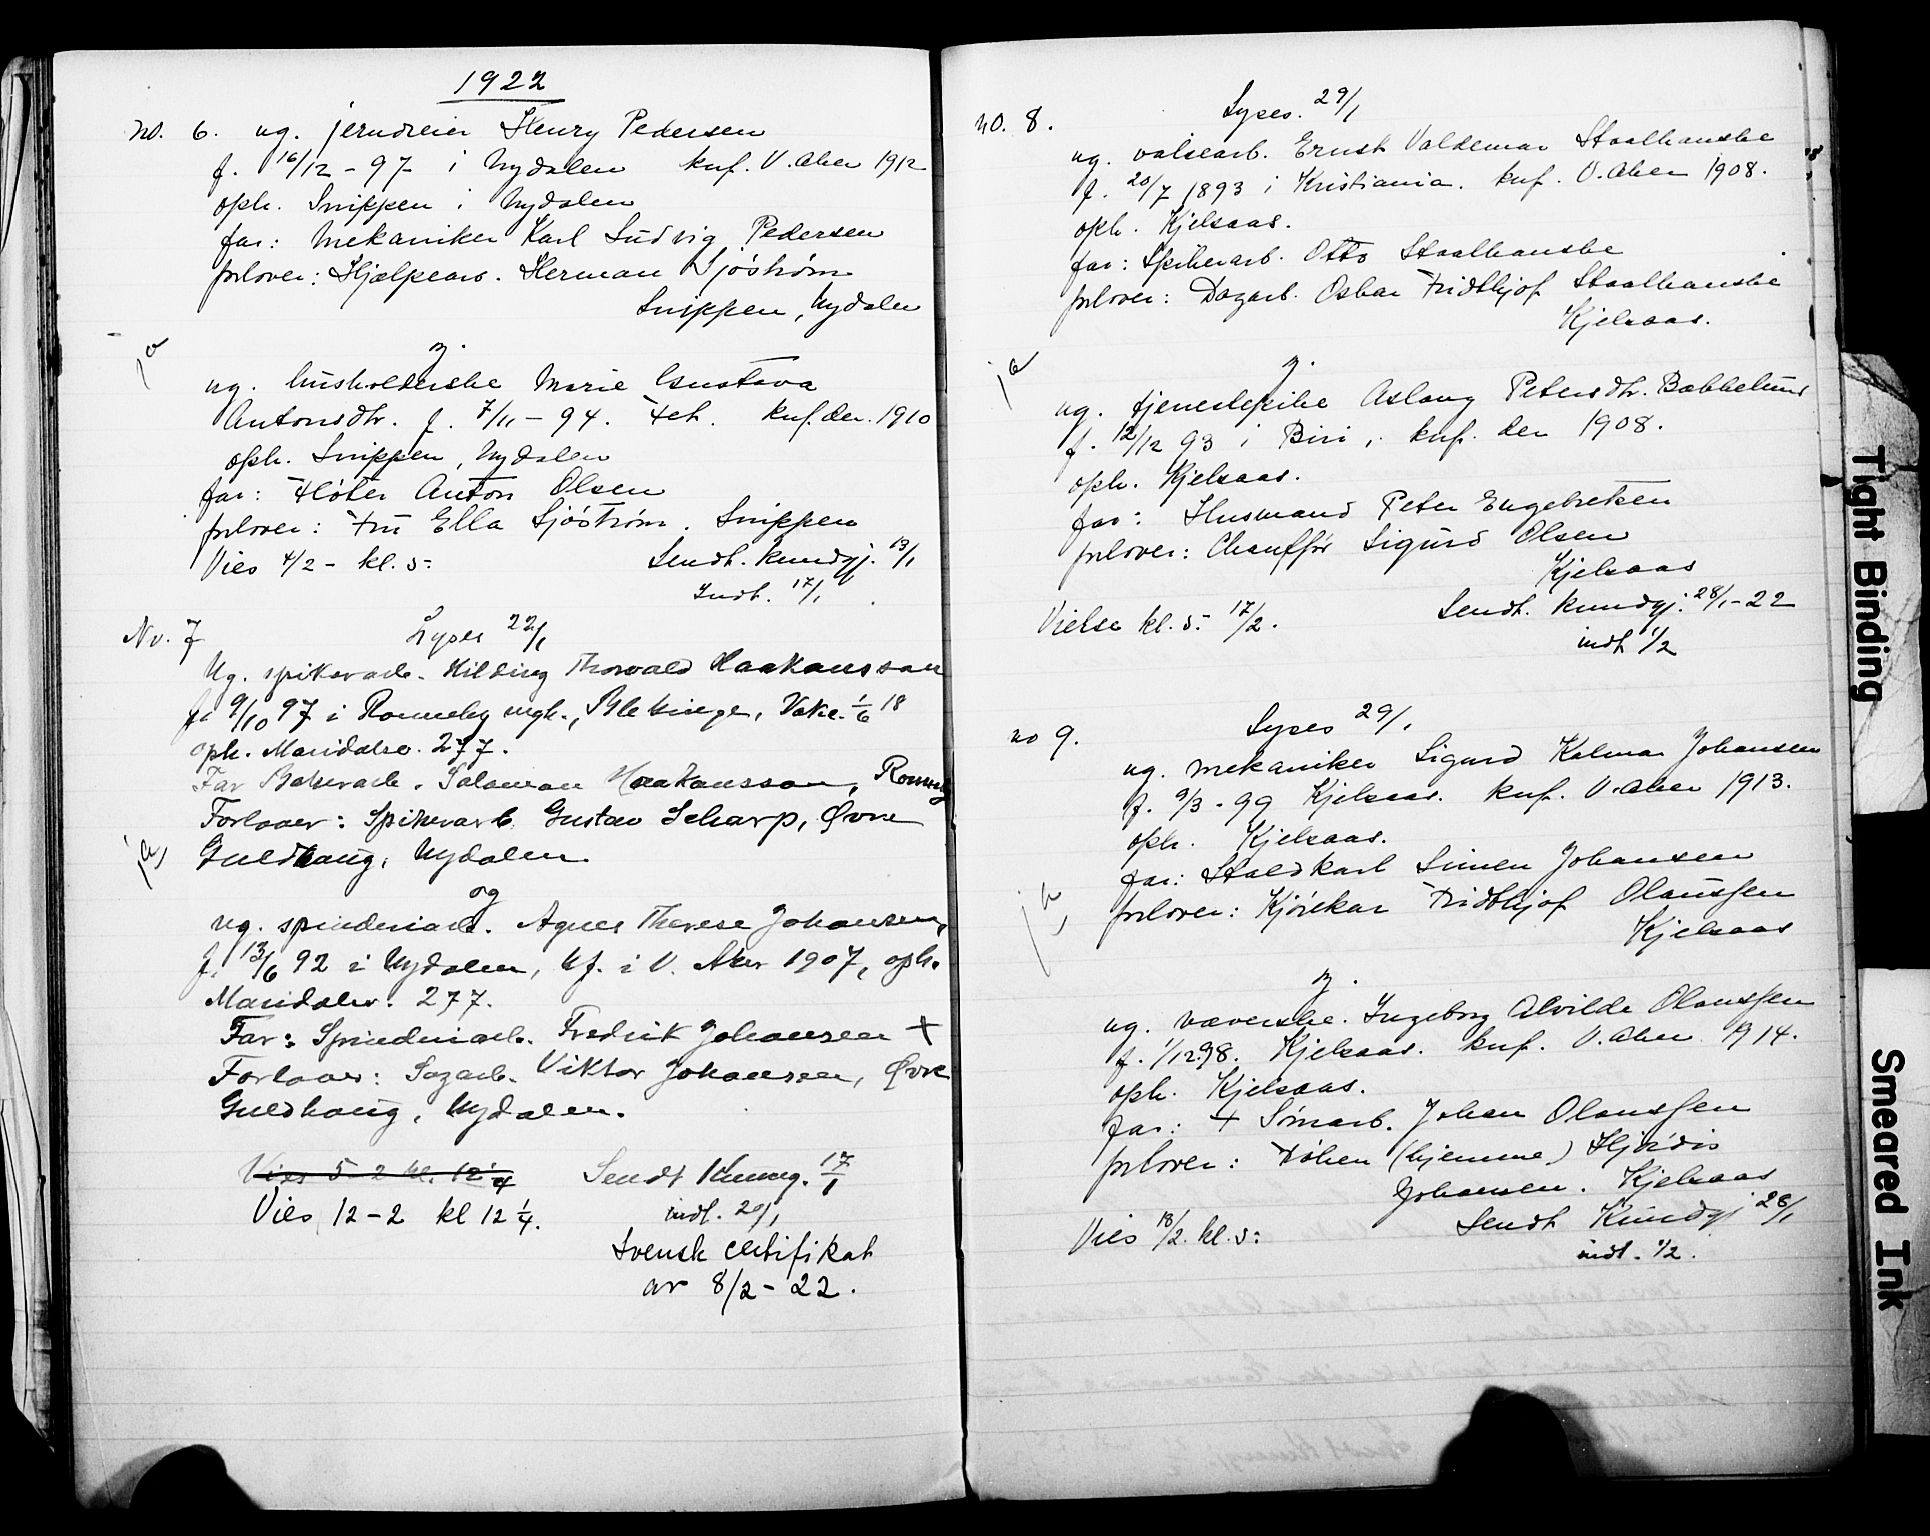 1922
no. 6. ug. jerndreier Henry Pedersen
f. 16/12 - 97 i Nydalen knf. V. Aker 1912
oph. Snippen i Nydalen
far: Mekaniker Karl Ludvig Pedersen
forlover: Hjælpearb. Herman Sjöström
Snippen, Nydalen
ja
og.
ug. husholderske Marie Gustava
Antonsdtr. f. 7/11 - 94. Feh. knf. der. 1910
oph. Snippen, Nydalen
far: Fløter Anton Olsen
forlover: Fru Ella Sjöström. Snippen
Vies 4/2 - kl. 5- Sendt. kundgj. 13/1
Indt. 17/1
No. 7 Lyses 22/1
Ug. spikerarb. Hilding Thorvald Haakansson
f. 9/10 97 i Ronneby mgh., Blekinge, Vakc. 1/6 18
oph. Maridalsv. 277.
Far Salomon Haakansson, Ronneby
Forlover: Spikerarb. Gustav Scharp, Øvre
Guldhaug, Nydalen.
ja,
og
ug. spinderiarb. Agnes Therese Johansen,
f. 13/6 92 i Nydalen, kf. i V. Aker 1907, oph.
Maridalsv. 277.
Far: Spinderiarb. Fredrik Johansen +
Forlover: Sagarb. Viktor Johansen, Øvre
Guldhaug, Nydalen.
Vies 5-2 kl. 12 1/4 Sendt Kunng. 17/1
Vies 12-2 kl 12 1/4. indt. 20/1
Svensk certifikat
av 8/2 - 22.
no. 8. Lyses. 29/1
ug. valsearb. Ernst Valdemar Staalhanske
f. 20/7 1893 i Kristiania. knf. V. Aker 1908.
oph. Kjelsaas.
far: Spikerarb. Otto Staalhanske
forlover: Dagarb. Oskar Fridthjof Staalhanske
Kjelsaas.
ja
og.
ug. tjenestepike Aslaug Petersdtr. Bakkelund
f. 12/12 93 i Biri, knf. der 1908.
oph. Kjelsaas.
far: Husmand Peter Engebretsen
forlover: Chauffør Sigurd Olsen
Kjelsaas
Vielse kl. 5- 17/2. Sendt. kundgj. 28/1 - 22
indt 1/2
no 9. Lyses 29/1
ug. mekaniker Sigurd Kolmar Johansen
f. 9/3 - 99 Kjelsaas. knf. V. Aker 1913.
oph. Kjelsaas.
far: Staldkarl Simen Johansen
forlover: Kjørekar Fridthjof Olaussen
Kjelsaas
ja,
og.
ug. væverske. Ingeborg Alvilde Olaussen
f. 1/12 98. Kjelsaas. knf. V. Aker 1914.
oph. Kjelsaas.
far: + Johan Olaussen
forlover: Frøken (hjemme) Hjørdis
Johansen. Kjelsaas
Vies 18/2. kl. 5- Sendt Kundgj 28/1
indt. 1/2.
Tight Binding
Smeared Ink